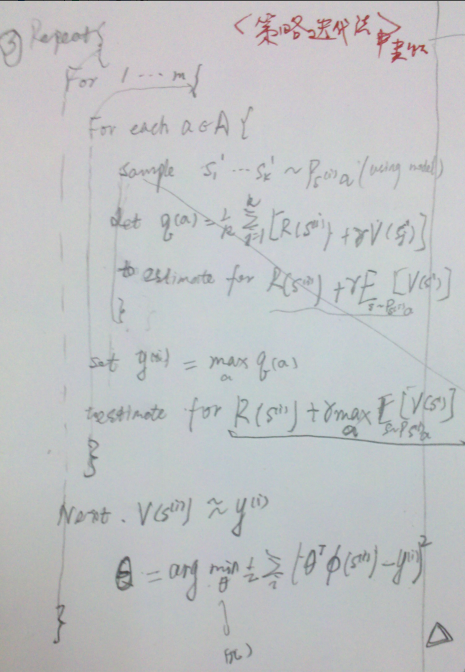 <策略迭代法>
③ Repeat{
For 1 ... m{
For each a∈A {
sample s₁' ... sₖ' ~ P_{s⁽ⁱ⁾a} (using model)
Let q(a) = 1/k Σ_{j=1}^{k} [R(s⁽ⁱ⁾) + γV(s'_j)]
to estimate for R(s⁽ⁱ⁾) + γE_{s'~P_{s⁽ⁱ⁾a}} [V(s')]
}
set y⁽ⁱ⁾ = max_a q(a)
to estimate for R(s⁽ⁱ⁾) + γ max_a E_{s'~P_{s⁽ⁱ⁾a}} [V(s')]
}
Next. V(s⁽ⁱ⁾) ≈ y⁽ⁱ⁾
θ = arg min_θ 1/2 Σ_i (θᵀφ(s⁽ⁱ⁾) - y⁽ⁱ⁾)²
}